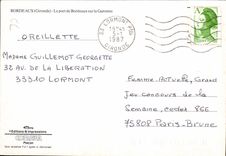 BORDEAUX (Gironde) - Le port de Bordeaux sur la Garonne
33 LORMONT PAL
1987
GIRONDE
OREILLETTE
MADAME GUILLEMOT GEORGETTE
32 AV. DE LA LIBERATION
33310 LORMONT
FEMME ACTUELLE, GRAND
JEU CONCOURS DE LA
SEMAINE, CEDEX 866
75808 PARIS-BRUNE